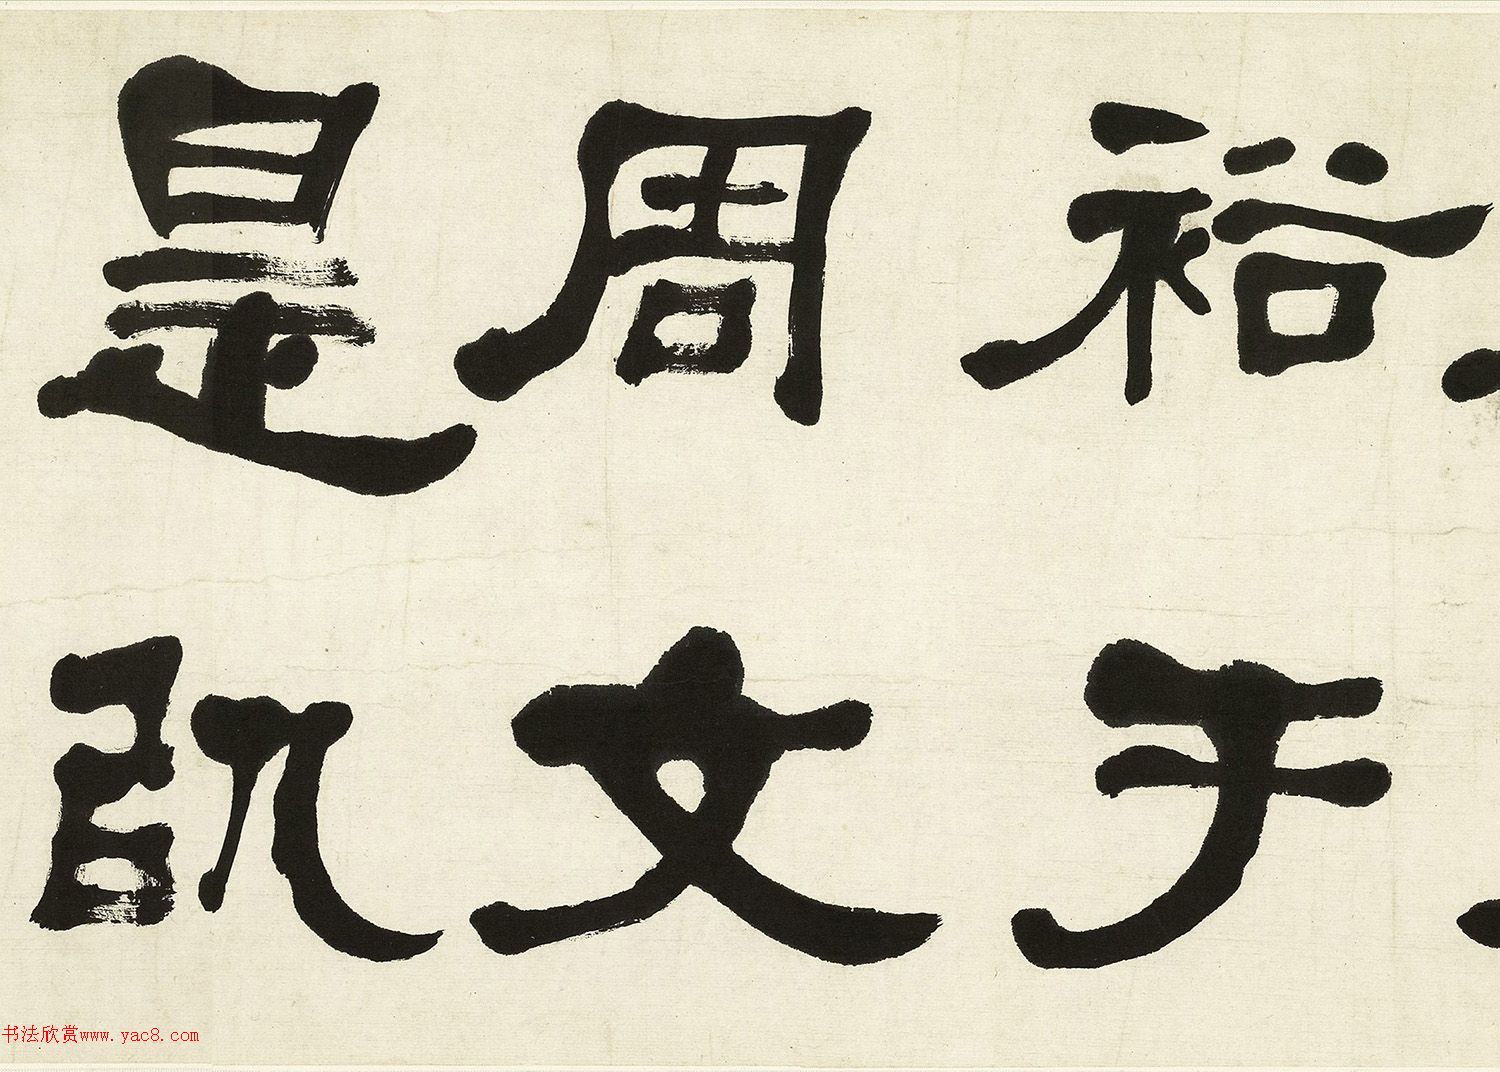 裕于
周文
是訊
书法欣赏www.yac8.com